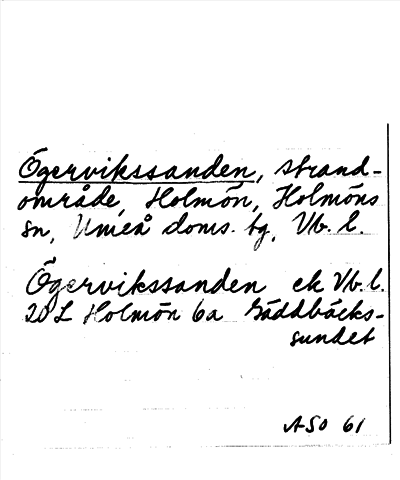 Ögervikssanden, strand-
område, Holmön, Holmöns
sn, Umeå doms. tg, Vb. l.
Ögervikssanden ek Vb. l.
20 L Holmön 6a Gäddbäcks-
sundet
ASO 61